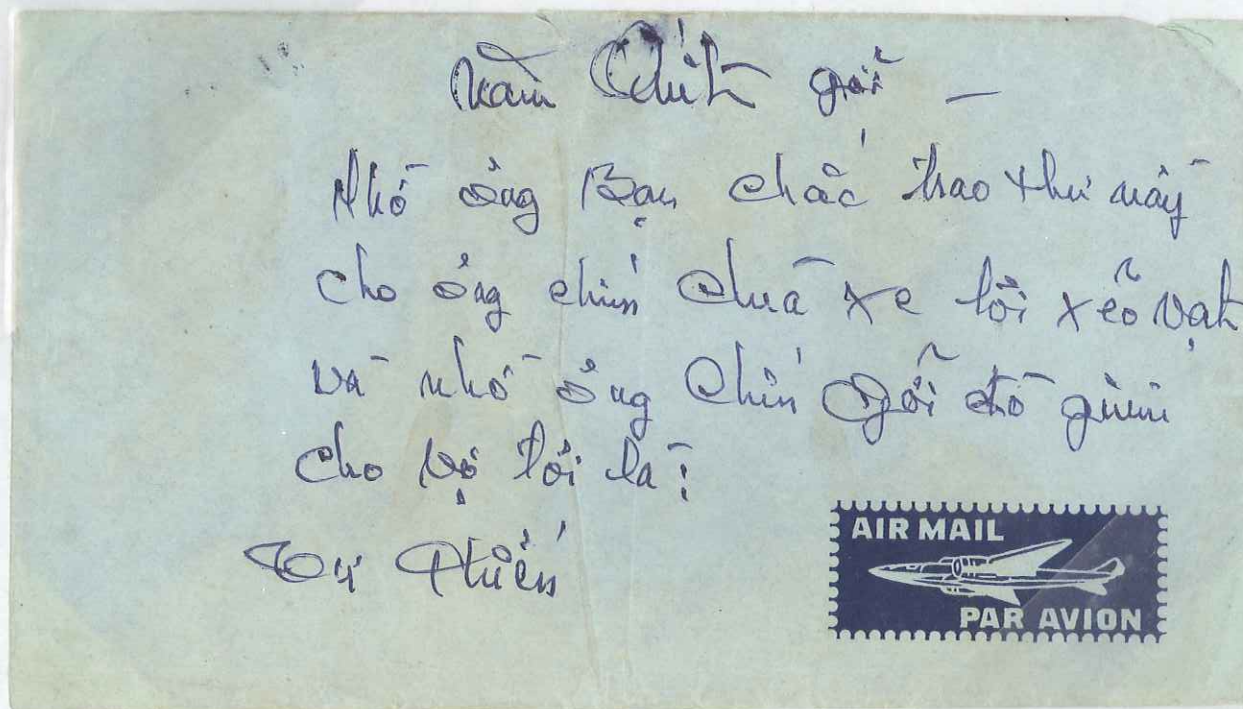 Năm Chút gởi —
Nhờ ông Bạn chắc trao thư nầy
cho ông chín chùa xe lôi xẻo vạt
và nhờ ông Chín Gởi đò giùm
cho vợ tôi là :
Tư Thiến
AIR MAIL
PAR AVION